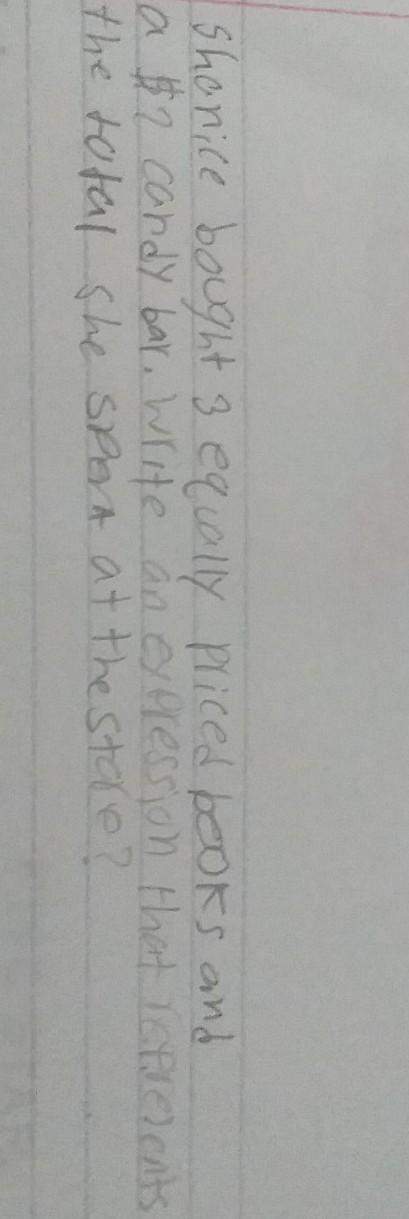 Shanice bought 3 equally priced books and
a $2 candy bar. write an expression that represents
the total she spent at the store?